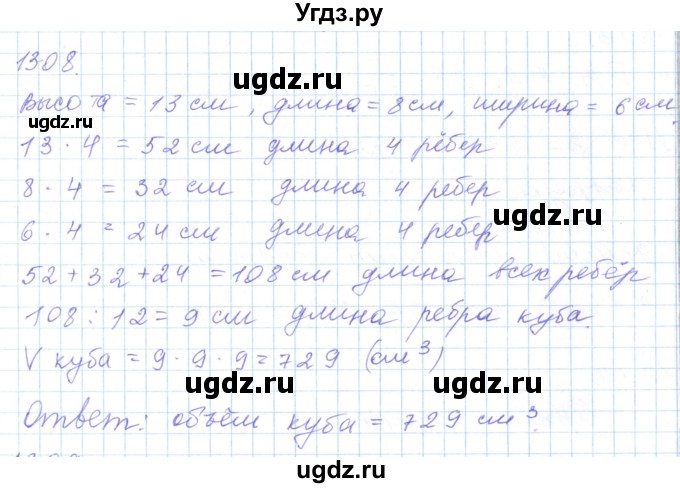 Угдз.ру
1308.
ugdz.ru
высота = 13 см, длина = 8 см, ширина = 6 см.
ugdz.ru
13 · 4 = 52 см длина 4 рёбер
8 · 4 = 32 см длина 4 ребер
ugdz.ru
6 · 4 = 24 см длина 4 ребер
52 + 32 + 24 = 108 см длина всех ребёр
108 : 12 = 9 см длина ребра куба.
V куба = 9 · 9 · 9 = 729 (см³)
ugdz.ru ugdz.ru
Ответ: объём куба = 729 см³.
ugdz.ru